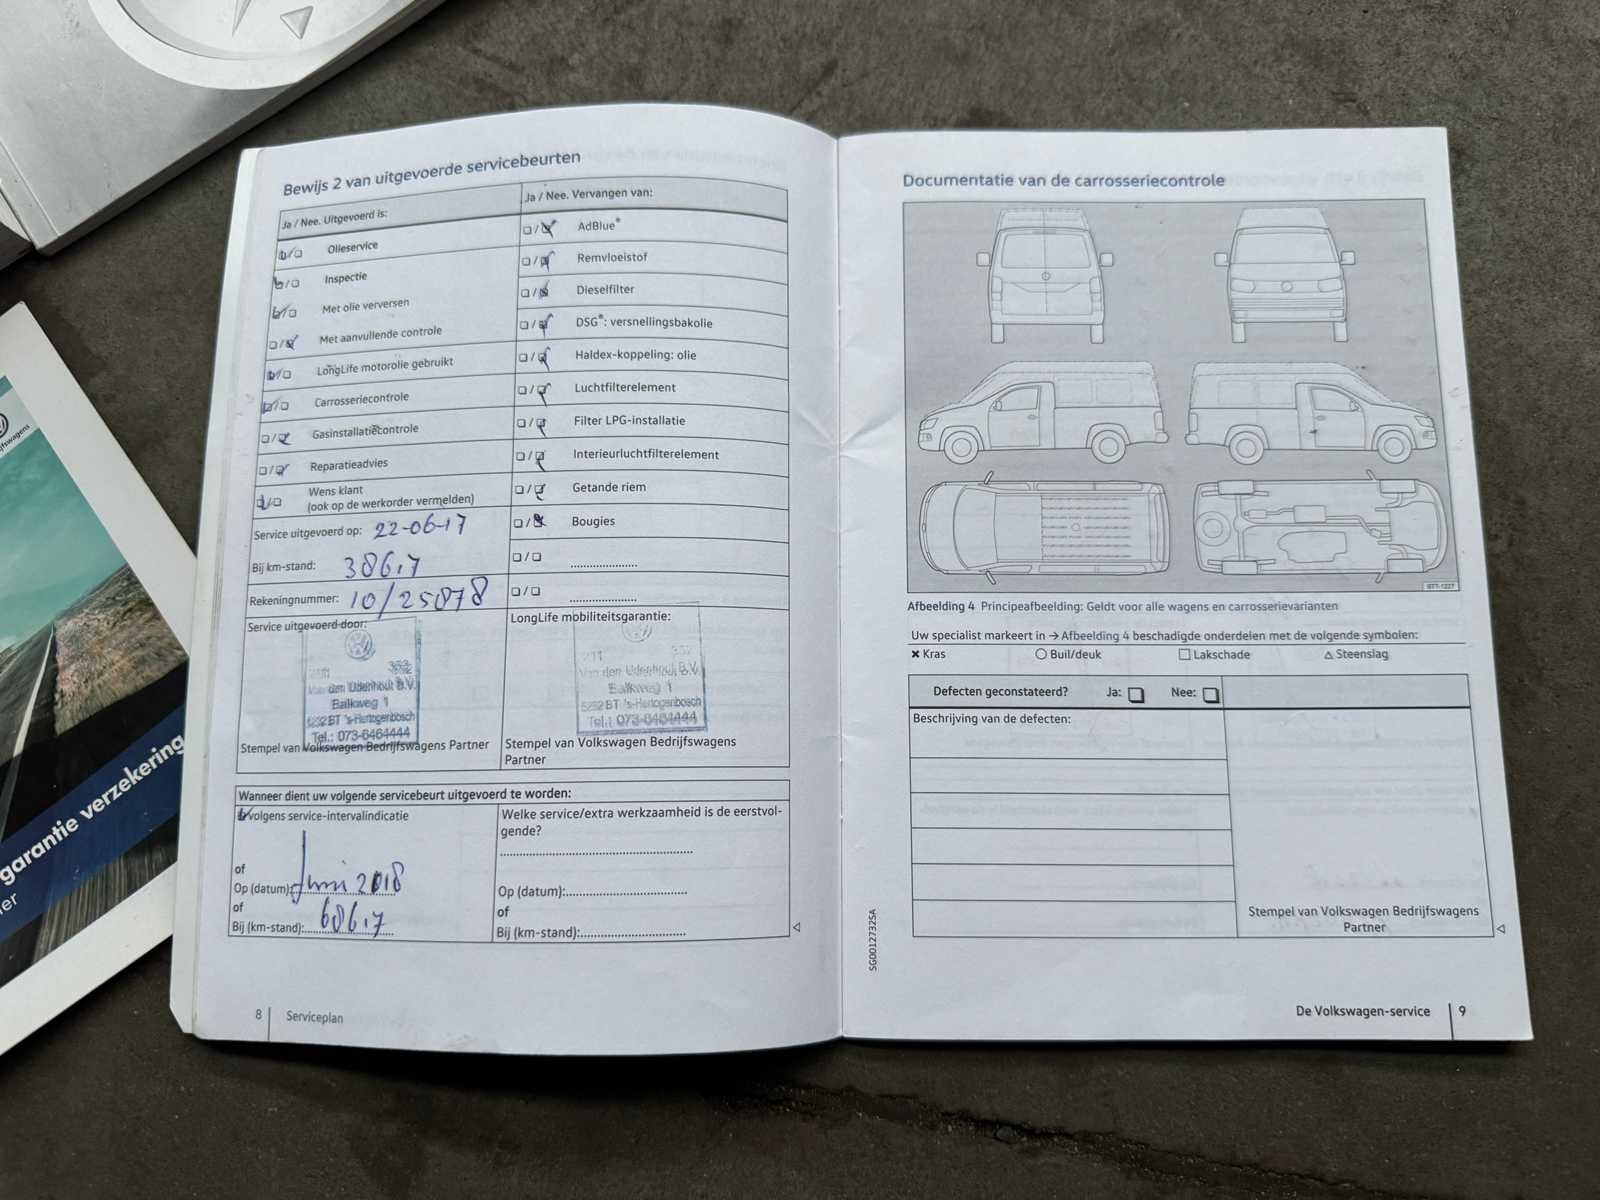 Bewijs 2 van uitgevoerde servicebeurten
Ja / Nee. Uitgevoerd is:
Ja / Nee. Vervangen van:
Olieservice
AdBlue®
Inspectie
Remvloeistof
Met olie verversen
Dieselfilter
Met aanvullende controle
DSG®: versnellingsbakolie
LongLife motorolie gebruikt
Haldex-koppeling: olie
Carrosseriecontrole
Luchtfilterelement
Gasinstallatiecontrole
Filter LPG-installatie
Reparatieadvies
Interieurluchtfilterelement
Wens klant
(ook op de werkorder vermelden)
Getande riem
Service uitgevoerd op: 22-06-17
Bougies
Bij km-stand:
Rekeningnummer: 10/25878
Service uitgevoerd door:
LongLife mobiliteitsgarantie:
Van den Udenhout B.V.
Balkweg 1
5232 BT 's-Hertogenbosch
Tel.: 073-6464444
Stempel van Volkswagen Bedrijfswagens Partner
Van den Udenhout B.V.
Balkweg 1
5232 BT 's-Hertogenbosch
Tel.: 073-6464444
Stempel van Volkswagen Bedrijfswagens
Partner
Wanneer dient uw volgende servicebeurt uitgevoerd te worden:
volgens service-intervalindicatie
of
Op (datum): Juni 2018
of
Bij (km-stand):
Welke service/extra werkzaamheid is de eerstvol-
gende?
Op (datum):
of
Bij (km-stand):
8 Serviceplan
Documentatie van de carrosseriecontrole
BTT-1227
Afbeelding 4 Principeafbeelding: Geldt voor alle wagens en carrosserievarianten
Uw specialist markeert in → Afbeelding 4 beschadigde onderdelen met de volgende symbolen:
✖ Kras ○ Buil/deuk □ Lakschade △ Steenslag
Defecten geconstateerd? Ja: Nee:
Beschrijving van de defecten:
Stempel van Volkswagen Bedrijfswagens
Partner
SG0012732SA
De Volkswagen-service 9
garantie verzekering